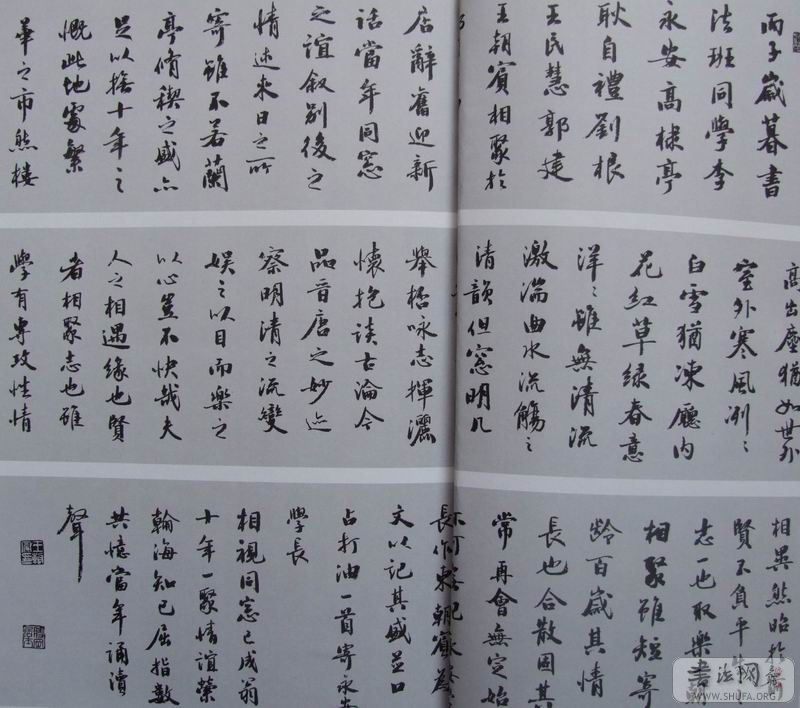 丙子歲暮書
法班同學李
永安高棣亭
耿自禮劉根
王民慧郭建
王朝賓相聚於
居辭舊迎新
話當年同窓
之誼叙別後之
情述来日之所
寄雖不若蘭
亭脩禊之盛亦
足以捨十年之
慨此地處繁
華之市然樓
高出塵猶如世外
室外寒風冽〃
白雪猶凍廳内
花紅草緑春意
洋〃雖無清流
激湍曲水流觴之
清韻但窓明几
舉杯咏志揮灑
懷抱談古淪今
品晋唐之妙迹
察明清之流變
娱之以目而樂之
以心豈不快哉夫
人之相遇緣也賢
者相聚志也雖
學有専攻性情
相異然昭於
賢不負平
志一也取樂書
相聚雖短寄
齡百歲其情
長也合散固其
常再會無定始
朝賓發
文以記其盛並口
占打油一首寄永安
學長
相視同窓已成翁
十年一聚情誼榮
翰海知己屈指數
共憶當年誦讀
聲
法网
WWW.SHUFA.ORG